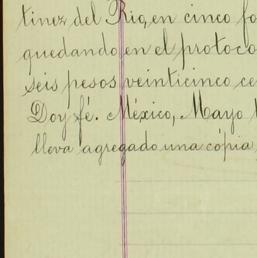 tinez del Rio, en cinco fo
quedando en el protoco
seis pesos veinticinco ce
Doy fé. México, Mayo 1
lleva agregado una cópia,